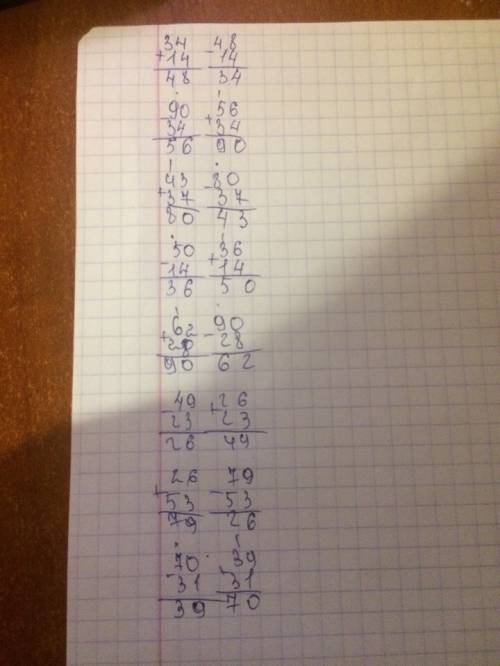 34 48
+14 -14
48 34
90 56
-34 +34
56 90
43 80
+37 -37
80 43
50 36
-14 +14
36 50
62 90
+28 -28
90 62
49 26
-23 +23
26 49
26 79
+53 -53
79 26
70 39
-31 -31
39 70